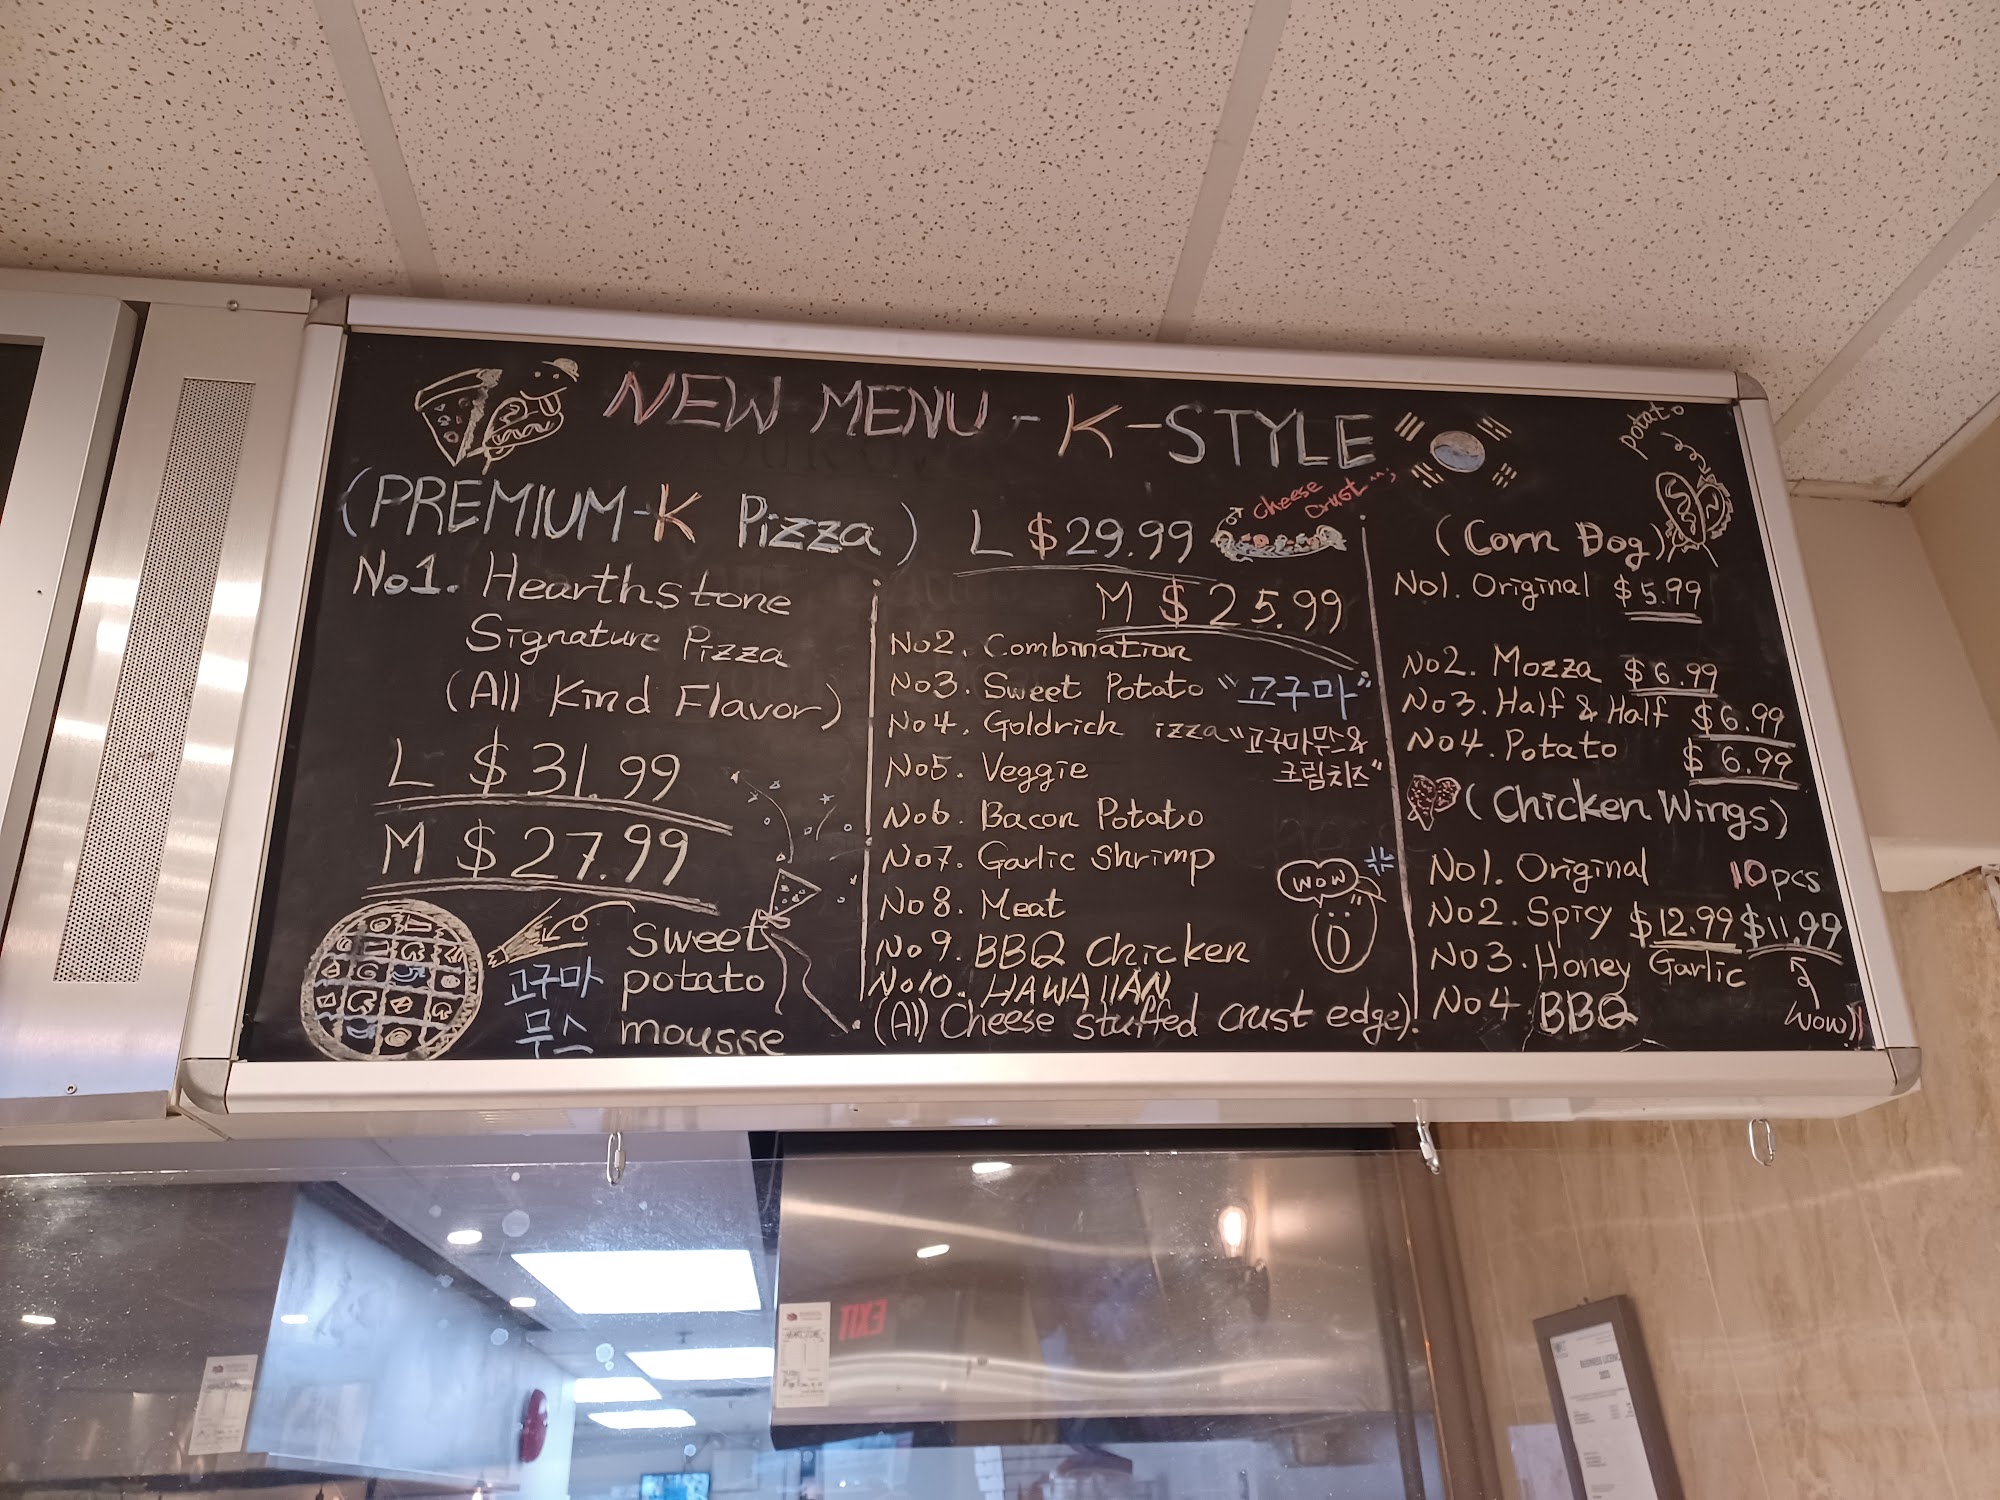 NEW MENU - K-STYLE
(PREMIUM-K Pizza)
No1. Hearthstone
Signature Pizza
(All Kind Flavor)
L $31.99
M $27.99
고구마
무스
sweet
potato
mousse
L $29.99
cheese
crust ^^;
M $25.99
No2. Combination
No3. Sweet Potato "고구마"
No4. Goldrich izza "고구마무스&
크림치즈"
No5. Veggie
No6. Bacon Potato
No7. Garlic Shrimp
No8. Meat
No9. BBQ Chicken
No10. HAWAIIAN
(All Cheese stuffed crust edge)
WOW
potato
(Corn Dog)
No1. Original $5.99
No2. Mozza $6.99
No3. Half & Half $6.99
No4. Potato $6.99
(Chicken Wings)
No1. Original 10pcs
No2. Spicy $12.99 $11.99
No3. Honey Garlic
No4 BBQ
WOW!!
EXIT
BUSINESS LICENCE